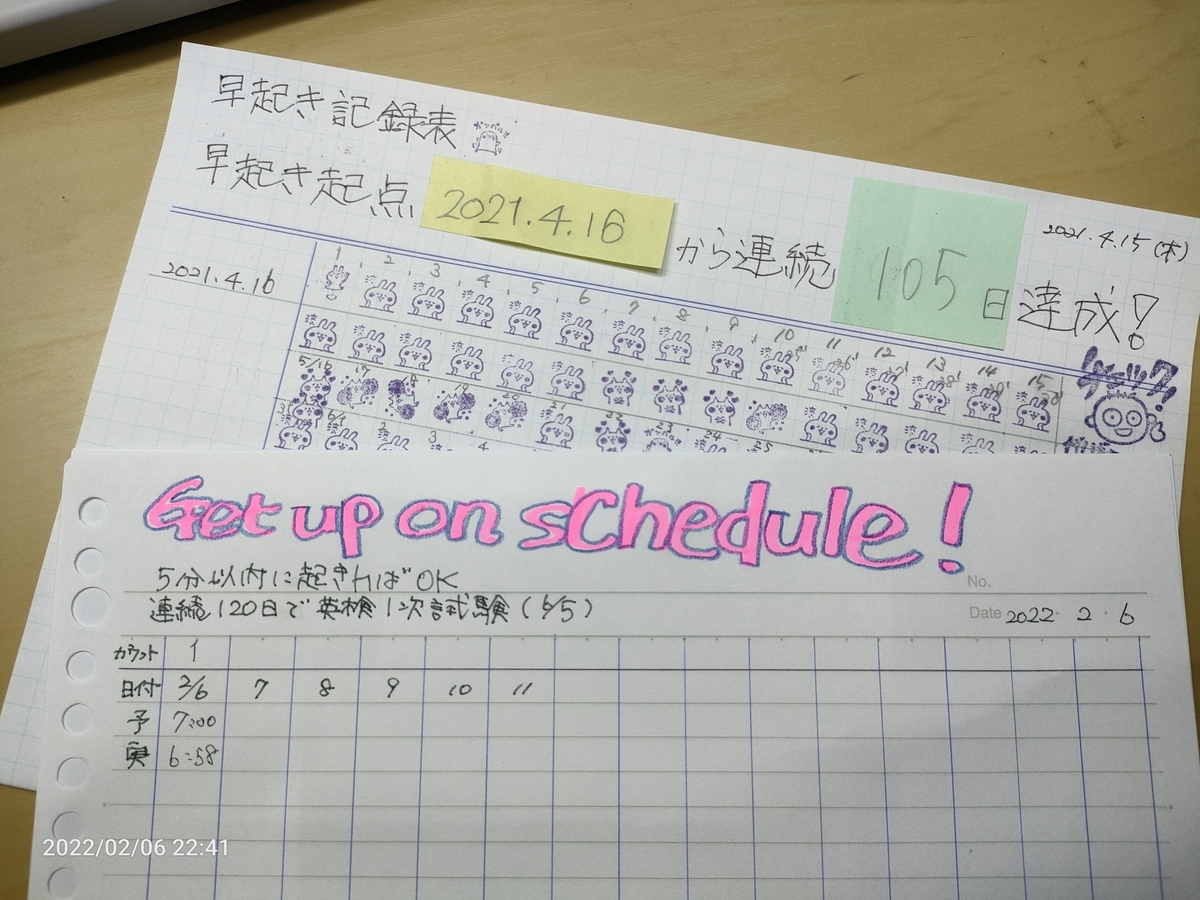 早起き記録表 ガンバルぞ
早起き起点 2021.4.16 から連続 105日達成!
2021.4.15(木)
2021.4.16
1 2 3 4 5 6 7 8 9 10 11 12 13 14 15
5/16 17 18 19 20 21 22 23 24 25
2 3 4
Get up on schedule!
5分以内に起きればOK
No.
連続120日で英検1次試験(6/5)
Date 2022・2・6
カウント 1
日付 2/6 7 8 9 10 11
予 7:00
実 6:58
2022/02/06 22:41